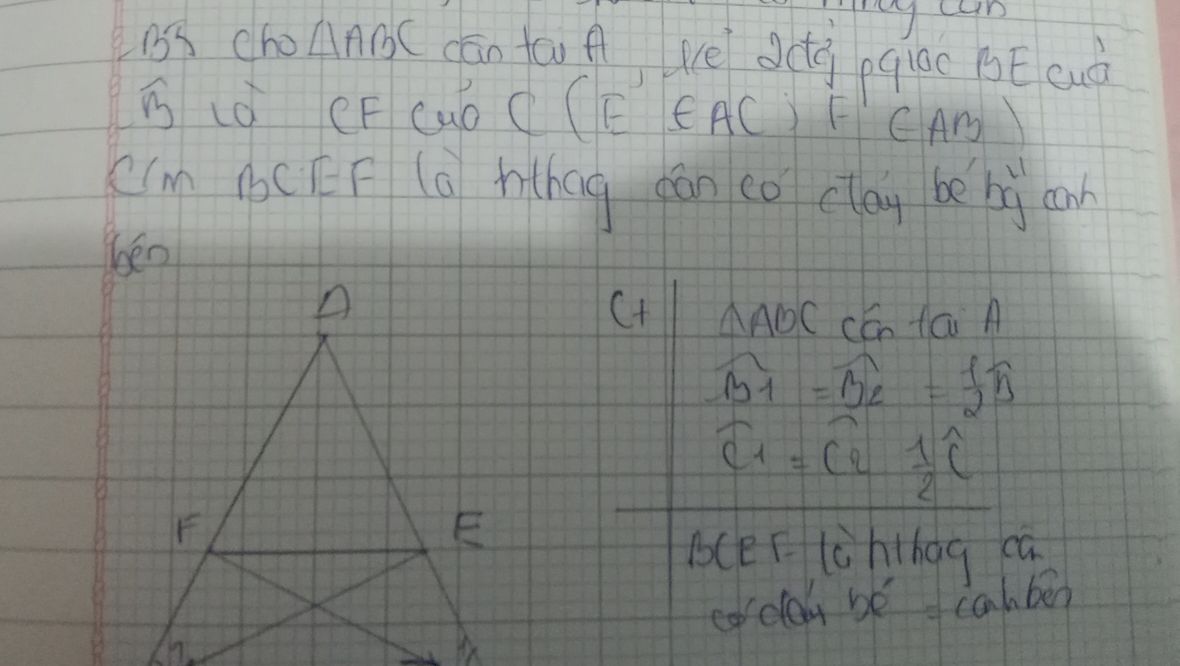 cho ΔABC cân tại A, kẻ 2 đg pgiác BE của
B̂ và CF của C (E ∈ AC; F ∈ AB)
C/m BCEF là hthag cân có đáy bé bg cạnh
bên
A
Gt ΔABC cân tại A
B̂1 = B̂2 = 1/2 B̂
Ĉ1 = Ĉ2 1/2 Ĉ
F E
BCEF là hthag cân
có đáy bé = cạnh bên